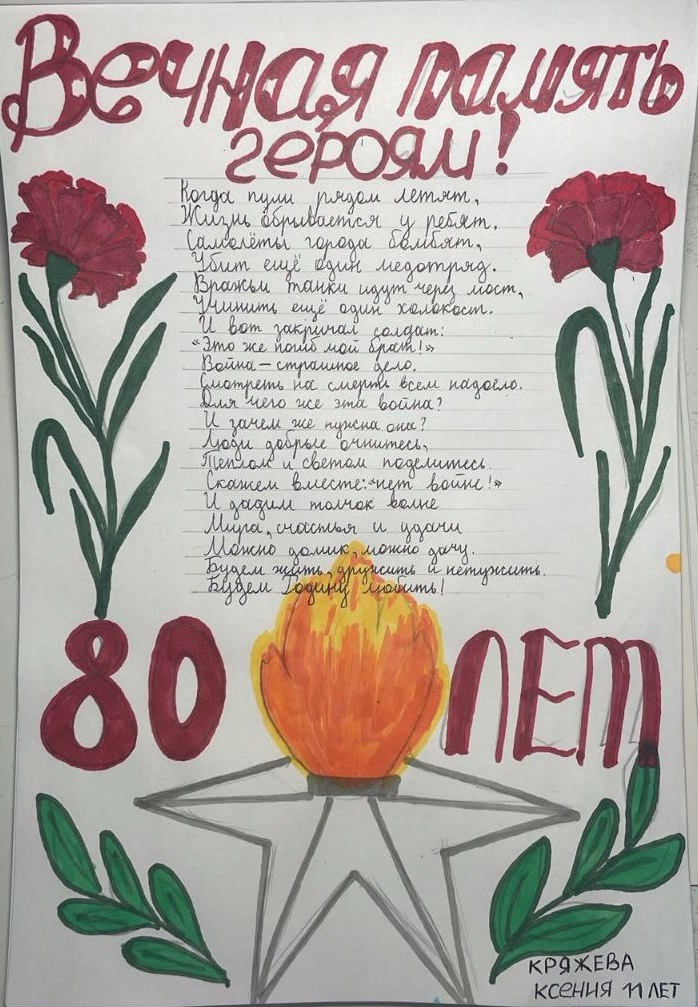 Вечная память
героям!
Когда пули рядом летят,
Жизнь обрывается у ребят.
Самолёты города бомбят,
Убит ещё один медотряд.
Вражьи танки идут через мост,
Учинить ещё один холокост.
И вот закричал солдат:
«Это же погиб мой брат!»
Война – страшное дело.
Смотреть на смерть всем надоело.
Для чего же эта война?
И зачем же нужна она?
Люди добрые очнитесь,
Теплом и светом поделитесь.
Скажем вместе: «нет войне!»
И дадим толчок волне
Мира, счастья и удачи
Можно домик, можно дачу.
Будем жить, дружить и нетужить.
Будем Родину любить!
80 ЛЕТ
КРЯЖЕВА
КСЕНИЯ 11 ЛЕТ